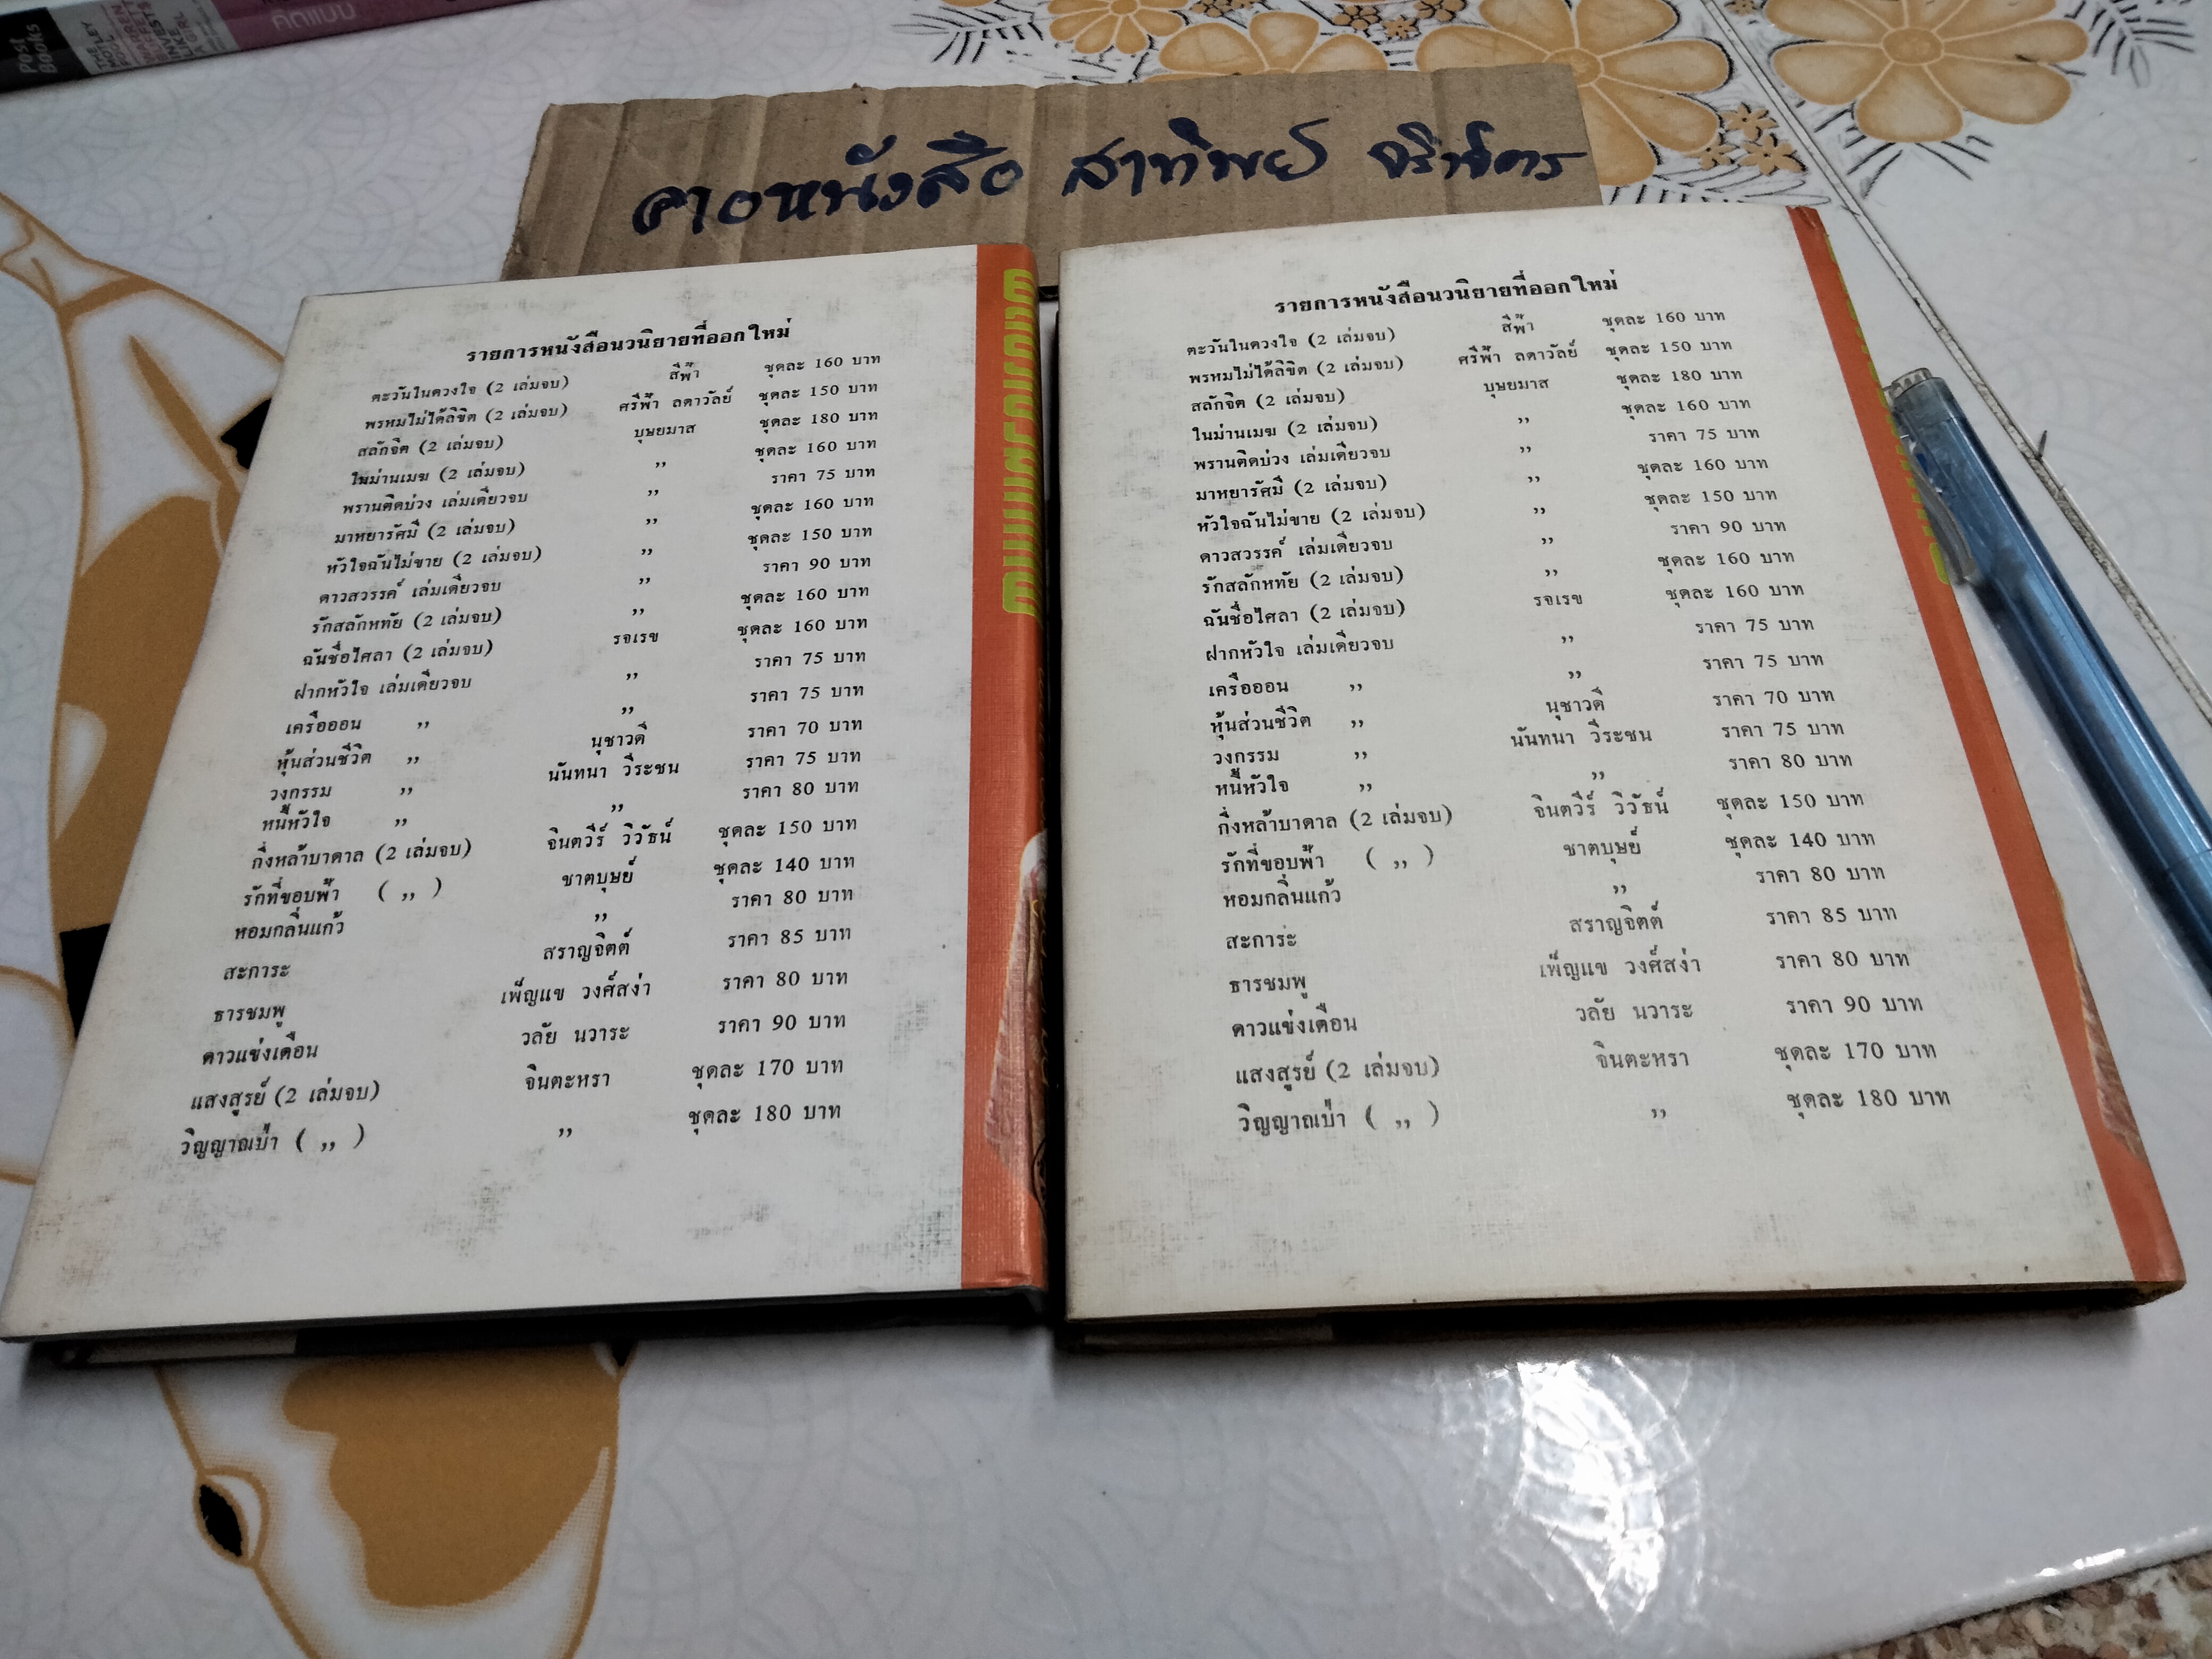 Post Books
THE MOTLEY FOOL
WARREN BUFFETT
INVESTS LIKE A GIRL
สาทิพย์
รายการหนังสือนวนิยายที่ออกใหม่
ตะวันในดวงใจ (2 เล่มจบ) สีฟ้า ชุดละ 160 บาท
พรหมไม่ได้ลิขิต (2 เล่มจบ) ศรีฟ้า ลดาวัลย์ ชุดละ 150 บาท
สลักจิต (2 เล่มจบ) บุษยมาส ชุดละ 180 บาท
ในม่านเมฆ (2 เล่มจบ) ,, ชุดละ 160 บาท
พรานติดบ่วง เล่มเดียวจบ ,, ราคา 75 บาท
มาหยารัศมี (2 เล่มจบ) ,, ชุดละ 160 บาท
หัวใจฉันไม่ขาย (2 เล่มจบ) ,, ชุดละ 150 บาท
ดาวสวรรค์ เล่มเดียวจบ ,, ราคา 90 บาท
รักสลักหทัย (2 เล่มจบ) ,, ชุดละ 160 บาท
ฉันชื่อไศลา (2 เล่มจบ) รจเรข ชุดละ 160 บาท
ฝากหัวใจ เล่มเดียวจบ ,, ราคา 75 บาท
เครือออน ,, ,, ราคา 75 บาท
หุ้นส่วนชีวิต ,, นุชาวดี ราคา 70 บาท
วงกรรม ,, นันทนา วีระชน ราคา 75 บาท
หนี้หัวใจ ,, ,, ราคา 80 บาท
กิ่งหล้าบาดาล (2 เล่มจบ) จินตวีร์ วิวัธน์ ชุดละ 150 บาท
รักที่ขอบฟ้า ( ,, ) ชาตบุษย์ ชุดละ 140 บาท
หอมกลิ่นแก้ว ,, ราคา 80 บาท
สะการะ สราญจิตต์ ราคา 85 บาท
ธารชมพู เพ็ญแข วงศ์สง่า ราคา 80 บาท
ดาวแข่งเดือน วลัย นวาระ ราคา 90 บาท
แสงสูรย์ (2 เล่มจบ) จินตะหรา ชุดละ 170 บาท
วิญญาณเป่า ( ,, ) ,, ชุดละ 180 บาท
รายการหนังสือนวนิยายที่ออกใหม่
ตะวันในดวงใจ (2 เล่มจบ) สีฟ้า ชุดละ 160 บาท
พรหมไม่ได้ลิขิต (2 เล่มจบ) ศรีฟ้า ลดาวัลย์ ชุดละ 150 บาท
สลักจิต (2 เล่มจบ) บุษยมาส ชุดละ 180 บาท
ในม่านเมฆ (2 เล่มจบ) ,, ชุดละ 160 บาท
พรานติดบ่วง เล่มเดียวจบ ,, ราคา 75 บาท
มาหยารัศมี (2 เล่มจบ) ,, ชุดละ 160 บาท
หัวใจฉันไม่ขาย (2 เล่มจบ) ,, ชุดละ 150 บาท
ดาวสวรรค์ เล่มเดียวจบ ,, ราคา 90 บาท
รักสลักหทัย (2 เล่มจบ) ,, ชุดละ 160 บาท
ฉันชื่อไศลา (2 เล่มจบ) รจเรข ชุดละ 160 บาท
ฝากหัวใจ เล่มเดียวจบ ,, ราคา 75 บาท
เครือออน ,, ,, ราคา 75 บาท
หุ้นส่วนชีวิต ,, นุชาวดี ราคา 70 บาท
วงกรรม ,, นันทนา วีระชน ราคา 75 บาท
หนี้หัวใจ ,, ,, ราคา 80 บาท
กิ่งหล้าบาดาล (2 เล่มจบ) จินตวีร์ วิวัธน์ ชุดละ 150 บาท
รักที่ขอบฟ้า ( ,, ) ชาตบุษย์ ชุดละ 140 บาท
หอมกลิ่นแก้ว ,, ราคา 80 บาท
สะการะ สราญจิตต์ ราคา 85 บาท
ธารชมพู เพ็ญแข วงศ์สง่า ราคา 80 บาท
ดาวแข่งเดือน วลัย นวาระ ราคา 90 บาท
แสงสูรย์ (2 เล่มจบ) จินตะหรา ชุดละ 170 บาท
วิญญาณเป่า ( ,, ) ,, ชุดละ 180 บาท